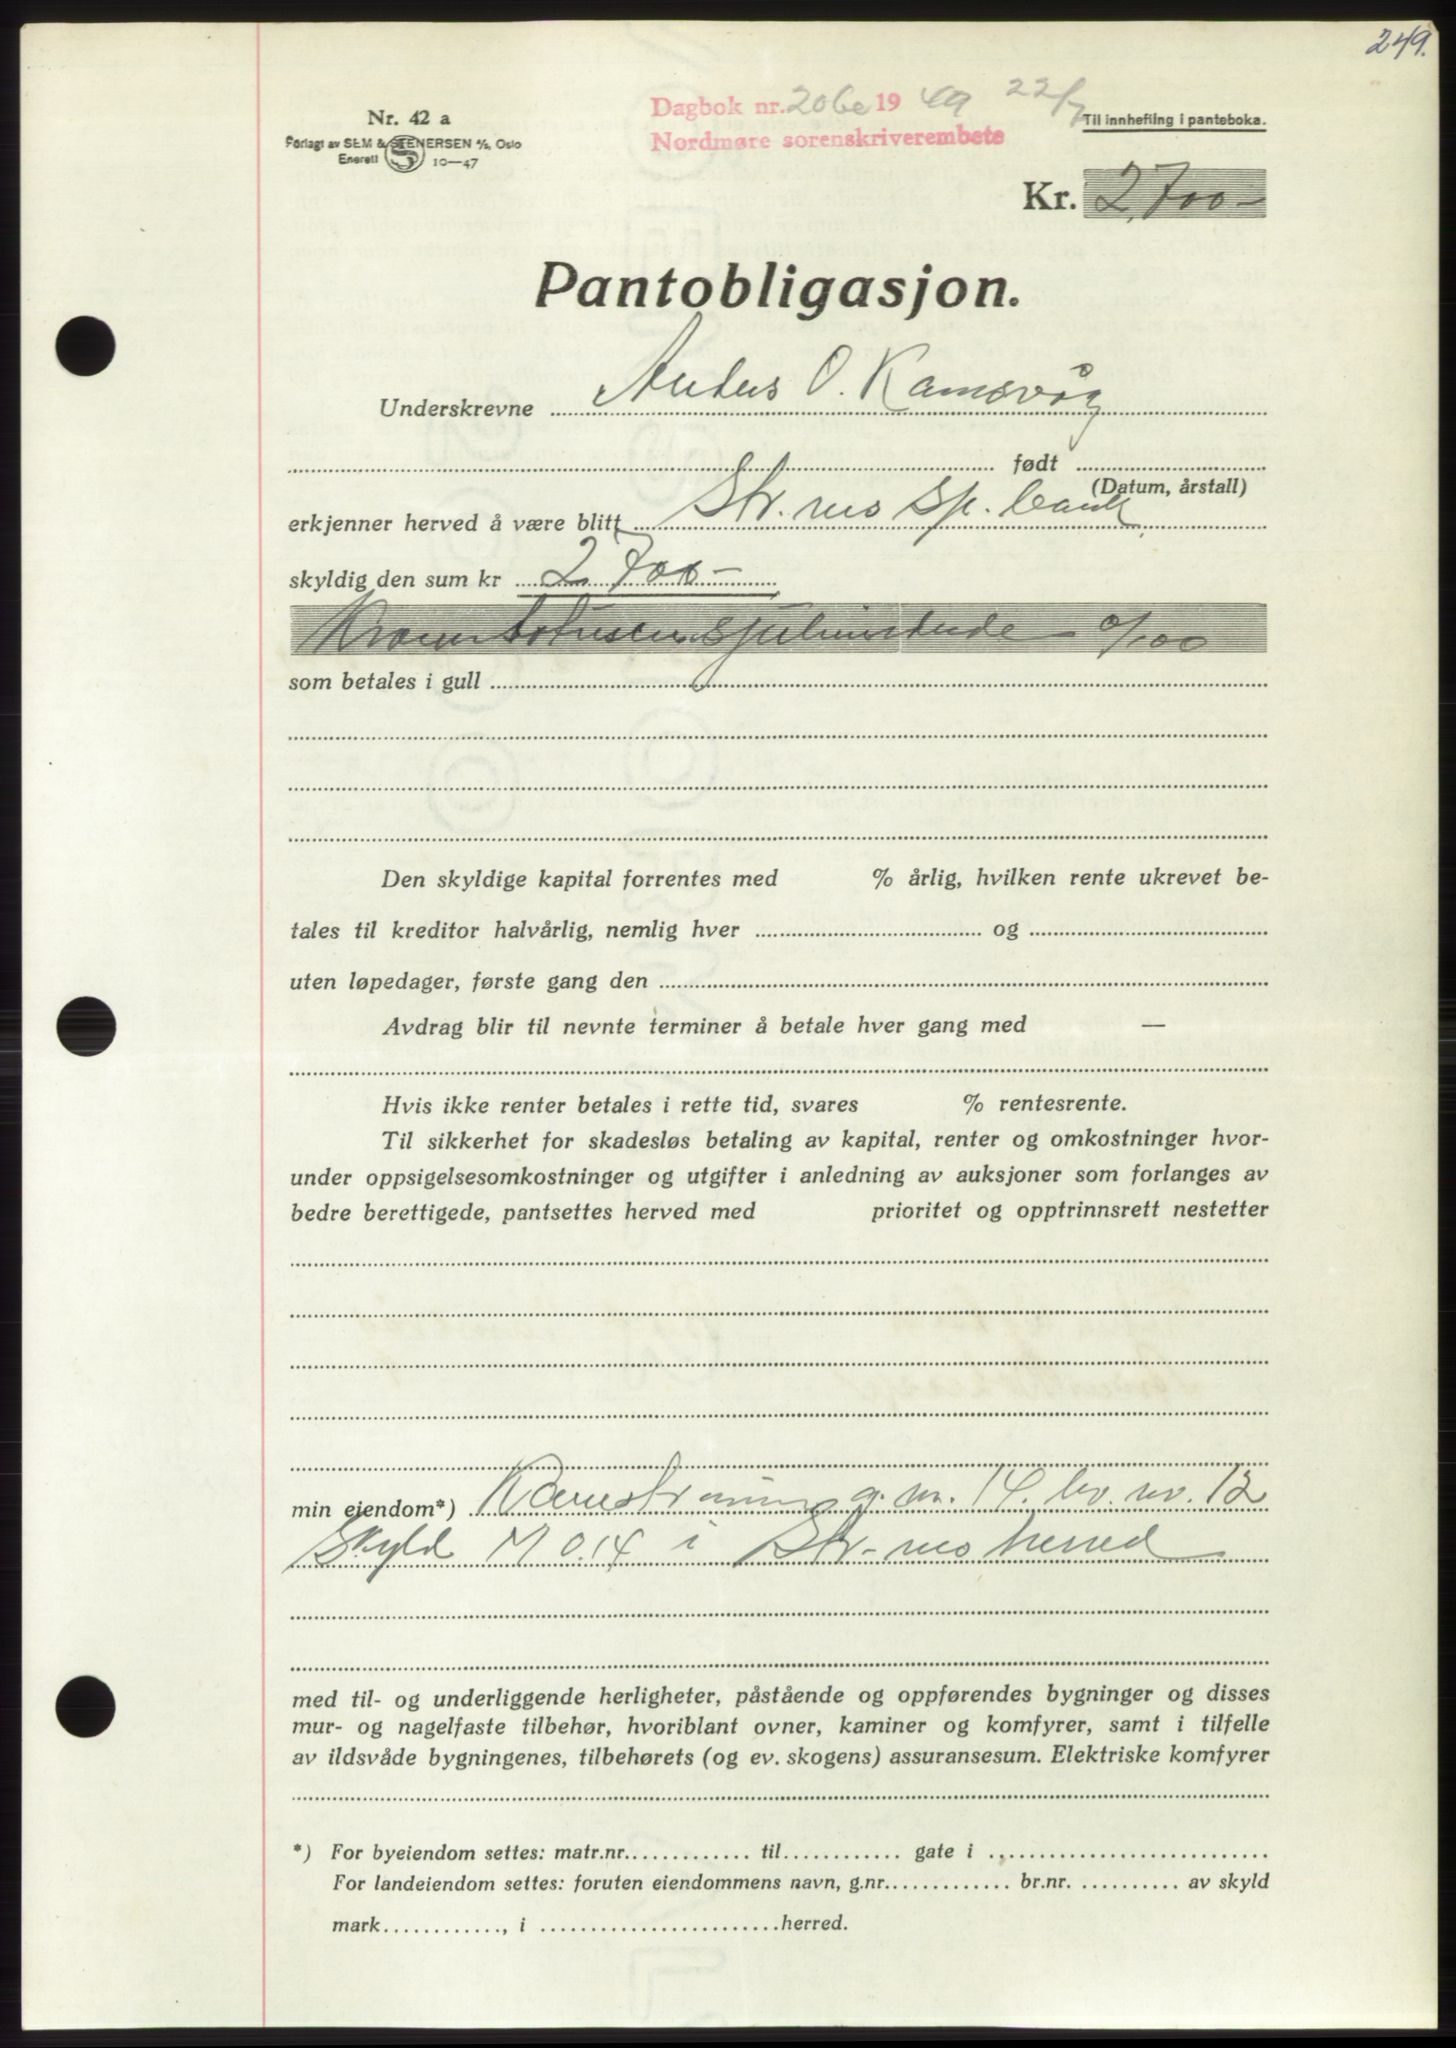 249.
Nr. 42 a
Forlagt av SEM & STENERSEN A/S, Oslo
Enerett 10—47
Dagbok nr. 1949 22/7
Nordmøre sorenskriverembete
Til innhefting i panteboka.
Kr. 2,700-
Pantobligasjon.
Underskrevne Anders O. Ramsvåg
født
(Datum, årstall)
erkjenner herved å være blitt Str. nes Sp. bank
skyldig den sum kr 2700-
0/00
som betales i gull
Den skyldige kapital forrentes med % årlig, hvilken rente ukrevet be-
tales til kreditor halvårlig, nemlig hver og
uten løpedager, første gang den
Avdrag blir til nevnte terminer å betale hver gang med —
Hvis ikke renter betales i rette tid, svares % rentesrente.
Til sikkerhet for skadesløs betaling av kapital, renter og omkostninger hvor-
under oppsigelsesomkostninger og utgifter i anledning av auksjoner som forlanges av
bedre berettigede, pantsettes herved med prioritet og opptrinnsrett nestetter
min eiendom*) g. nr. 14. br. nr. 12
Skyld M 0.14 i Str-nes herred
med til- og underliggende herligheter, påstående og oppførendes bygninger og disses
mur- og nagelfaste tilbehør, hvoriblant ovner, kaminer og komfyrer, samt i tilfelle
av ildsvåde bygningenes, tilbehørets (og ev. skogens) assuransesum. Elektriske komfyrer
*) For byeiendom settes: matr.nr. til gate i
For landeiendom settes: foruten eiendommens navn, g.nr. br.nr. av skyld
mark , i herred.